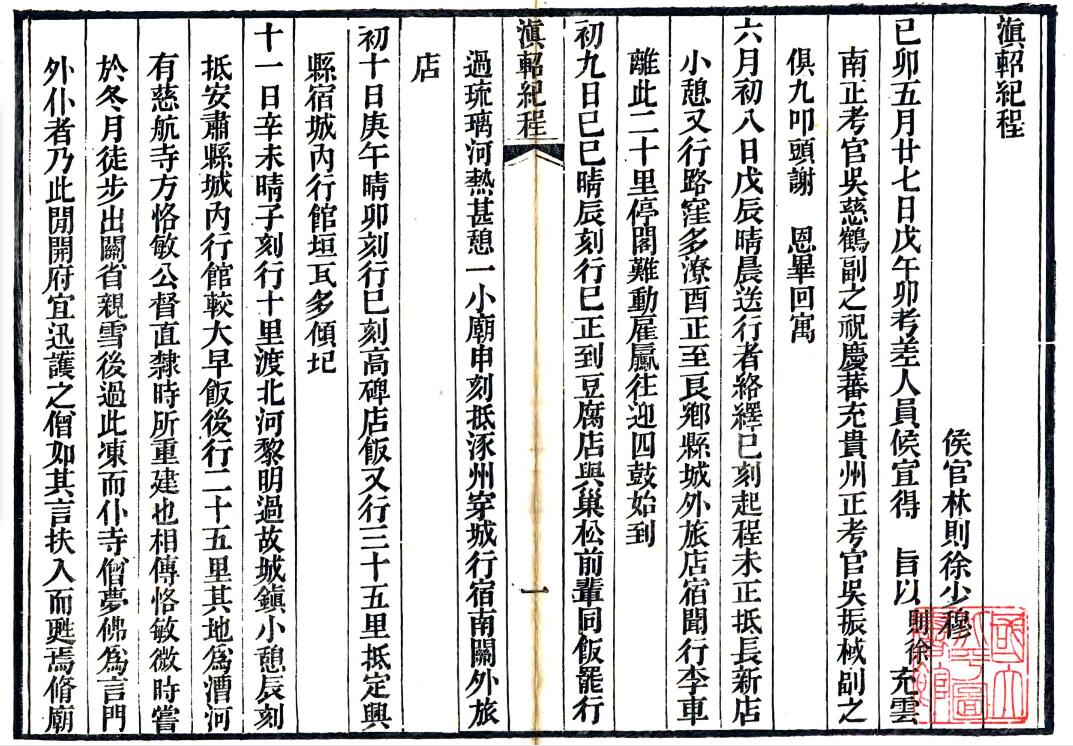 滇軺紀程
侯官林則徐少穆
己卯五月廿七日戊午卯考差人員候宣得　旨以則徐充雲
南正考官吳慈鶴副之祝慶蕃充貴州正考官吳振棫副之
俱九叩頭謝　恩畢回寓
六月初八日戊辰晴晨送行者絡繹巳刻起程未正抵長新店
小憩又行路窪多潦酉正至良鄉縣城外旅店宿聞行李車
離此二十里停閣難動雇驘往迎四鼓始到
初九日己巳晴辰刻行巳正到豆腐店與巢松前輩同飯罷行
滇軺紀程
一
過琉璃河熱甚憩一小廟申刻抵涿州穿城行宿南關外旅
店
初十日庚午晴卯刻行巳刻高碑店飯又行三十五里抵定興
縣宿城內行館垣瓦多傾圮
十一日辛未晴子刻行十里渡北河黎明過故城鎮小憩辰刻
抵安肅縣城內行館較大早飯後行二十五里其地爲漕河
有慈航寺方恪敏公督直隸時所重建也相傳恪敏微時嘗
於冬月徒步出關省親雪後過此凍而仆寺僧夢佛爲言門
外仆者乃此閒開府宜迅護之僧如其言扶入而甦焉脩廟
國立北平圖書館